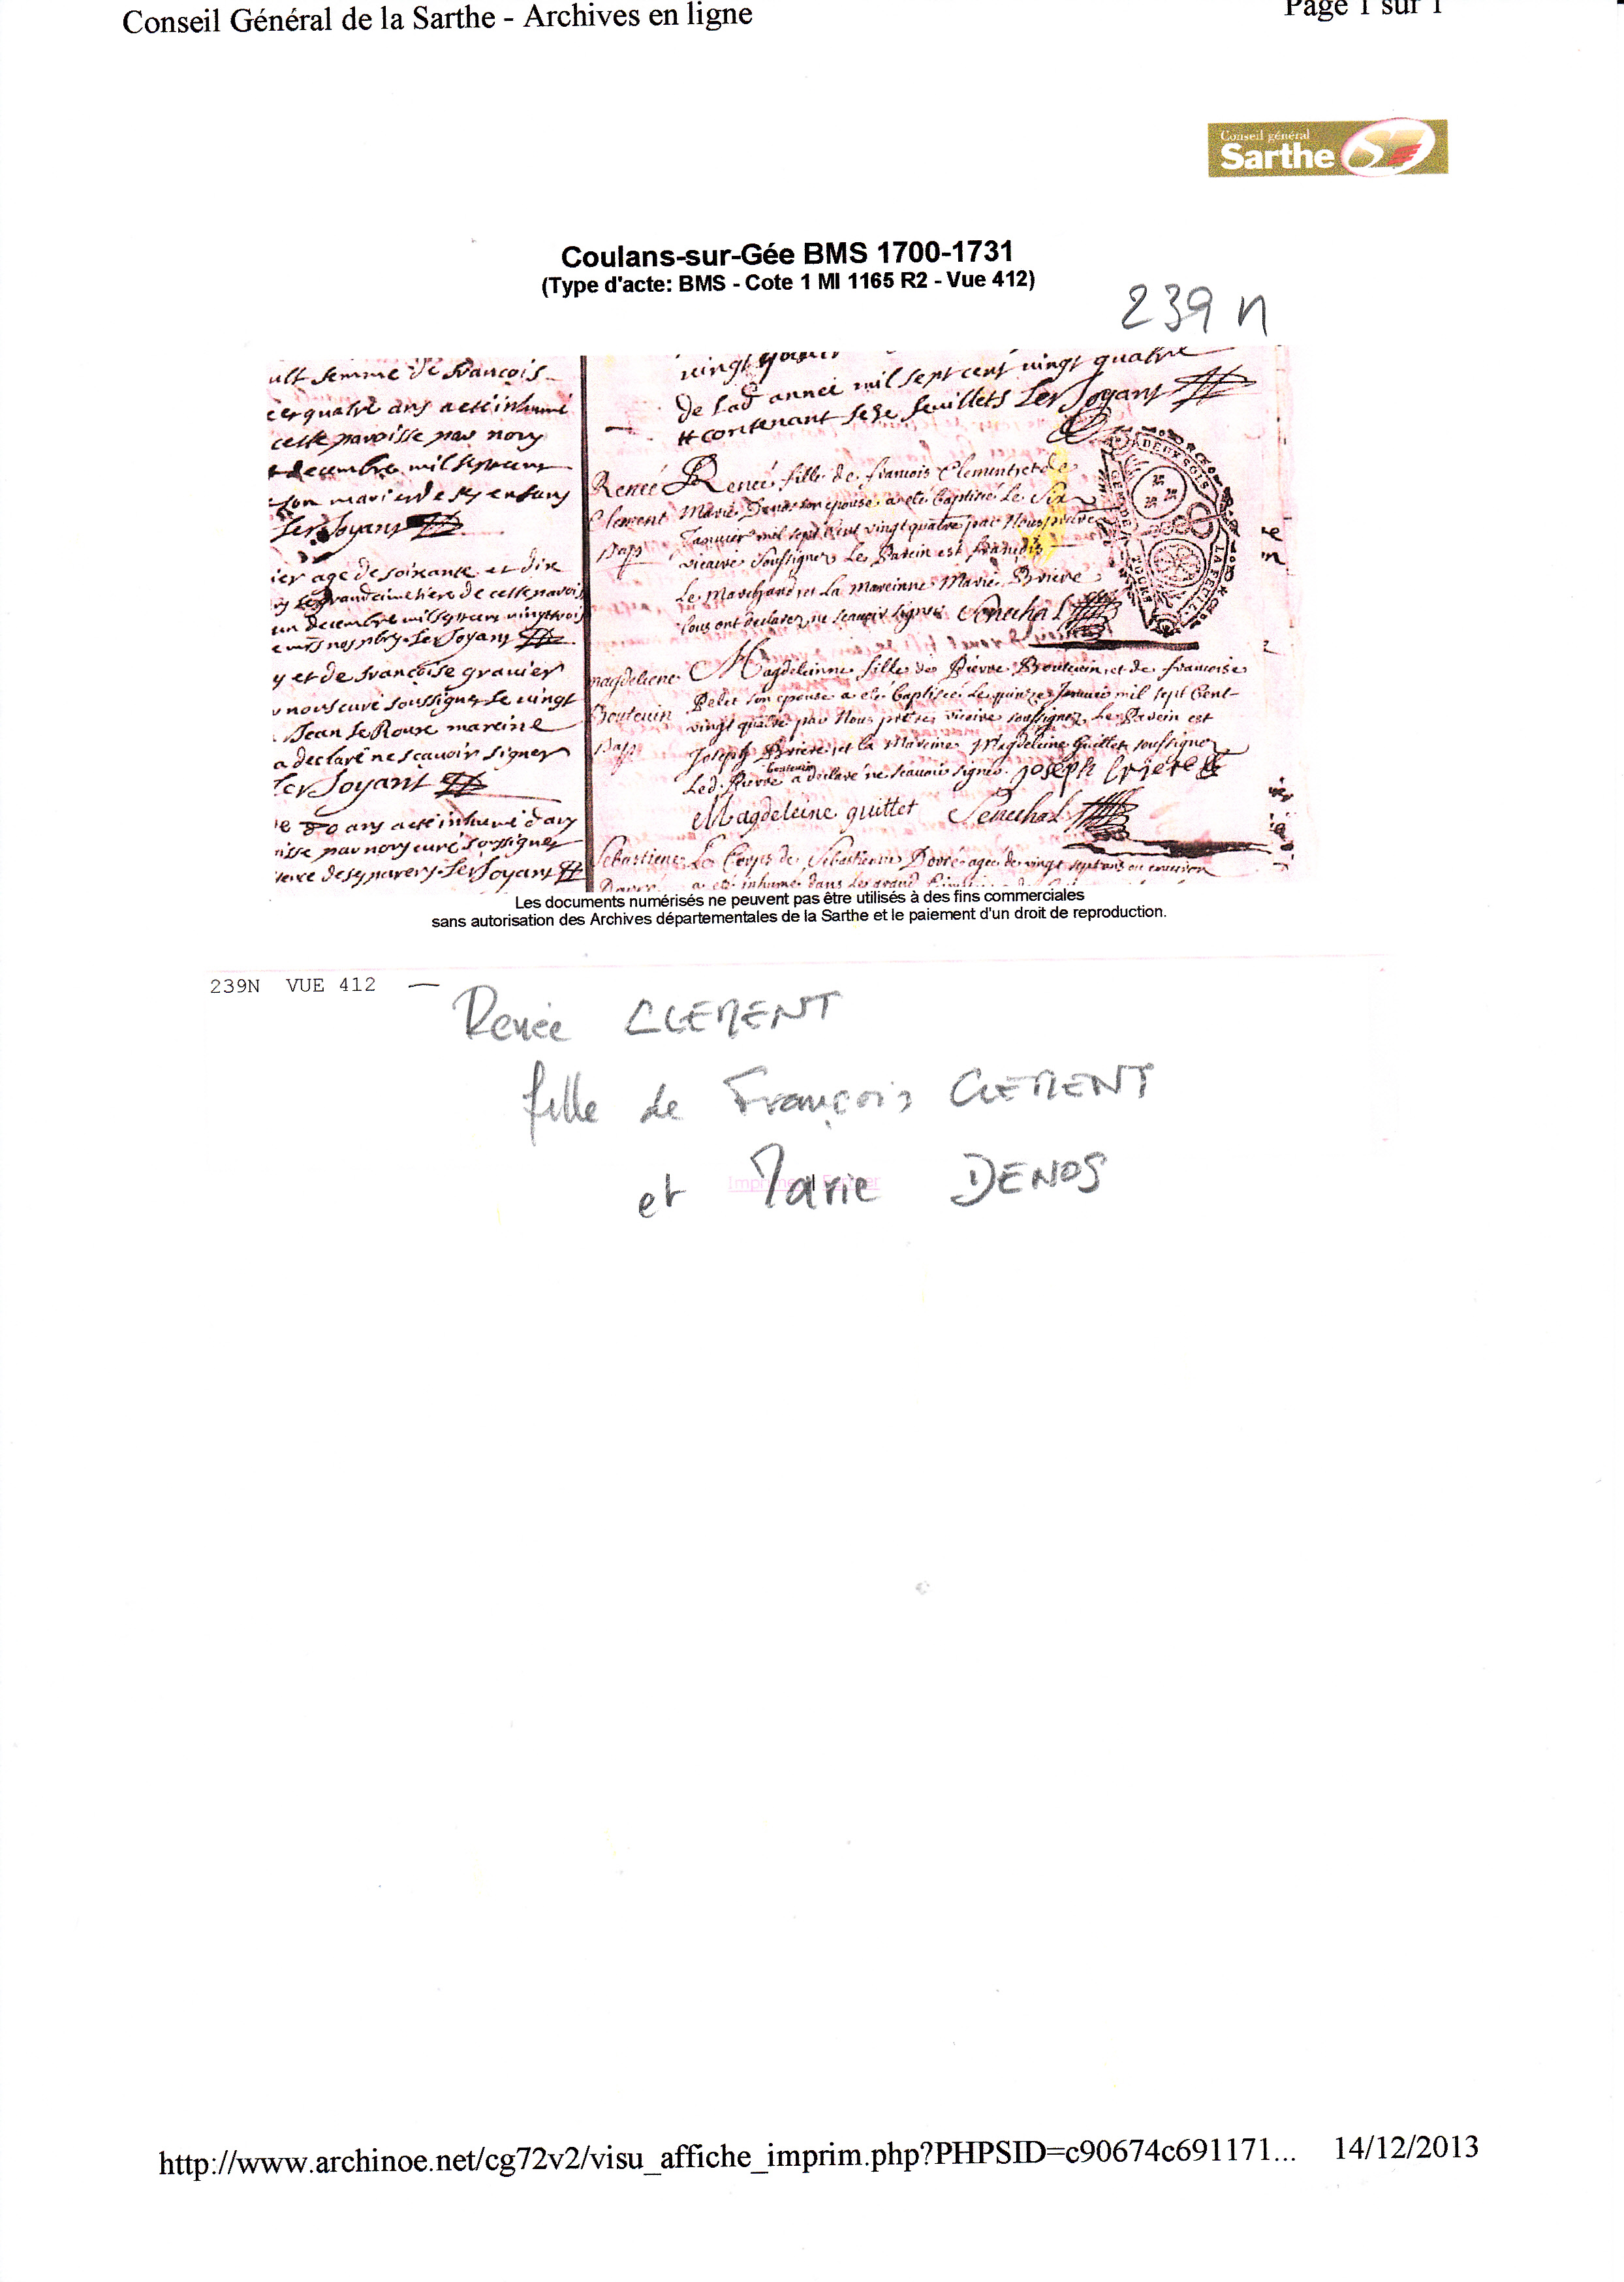 Conseil Général de la Sarthe - Archives en ligne
Page 1 sur 1
Conseil général
Sarthe
Coulans-sur-Gée BMS 1700-1731
(Type d'acte: BMS - Cote 1 MI 1165 R2 - Vue 412)
239 n
ult femme de francois
quatre ans a esté inhumé
cette paroisse par nous
decembre mil sept cent
son mari et de ses enfans
Ler Joyant
ier agé de soixante et dix
grand cimetiere de cette parois
un decembre mil sept cens vingt trois
Ler Joyant
y et de francoise gravier
nous curé soussigné le vingt
Jean le Roux mareine
a declaré ne scavoir signer
Ler Joyant
80 ans a esté inhumé dans
isse par nous curé soussigné
Ler Joyant
vingt
de lad annee mil sept cent vingt quatre
contenant seze feuillets Ler Joyant
Renée Renée fille de francois Clement et de
Clement Marie Denos son epouse a eté baptisé le six
Bap Januier mil sept Cent vingt quatre par Nous pretre
vicaire soussignez Le Parein est francois
Le Marchand et La Mareinne Marie Briere
Senechal
magdelene Magdeleinne fille de Pierre Boutevin et de francoise
Boutevin son epouse a eté baptisée le quinze Januier mil sept Cent
Bap vingt quatre par Nous pretre vicaire soussignez Le Parein est
Joseph Briere et la Mareine Magdeleine Guillet soussignez
Led. Pierre Boutevin a declaré ne scauoir signer. joseph briere
Magdeleine guillet Senechal
Sebastiene Le Corps de Sebastienne Dovré agée de vingt sept ans ou environ
a eté inhumé dans le grand
DEUX SOLS
LA FEUILLE
Les documents numérisés ne peuvent pas être utilisés à des fins commerciales
sans autorisation des Archives départementales de la Sarthe et le paiement d'un droit de reproduction.
239N VUE 412 — Renée CLEMENT
fille de François CLEMENT
et Marie DENOS
http://www.archinoe.net/cg72v2/visu_affiche_imprim.php?PHPSID=c90674c691171... 14/12/2013